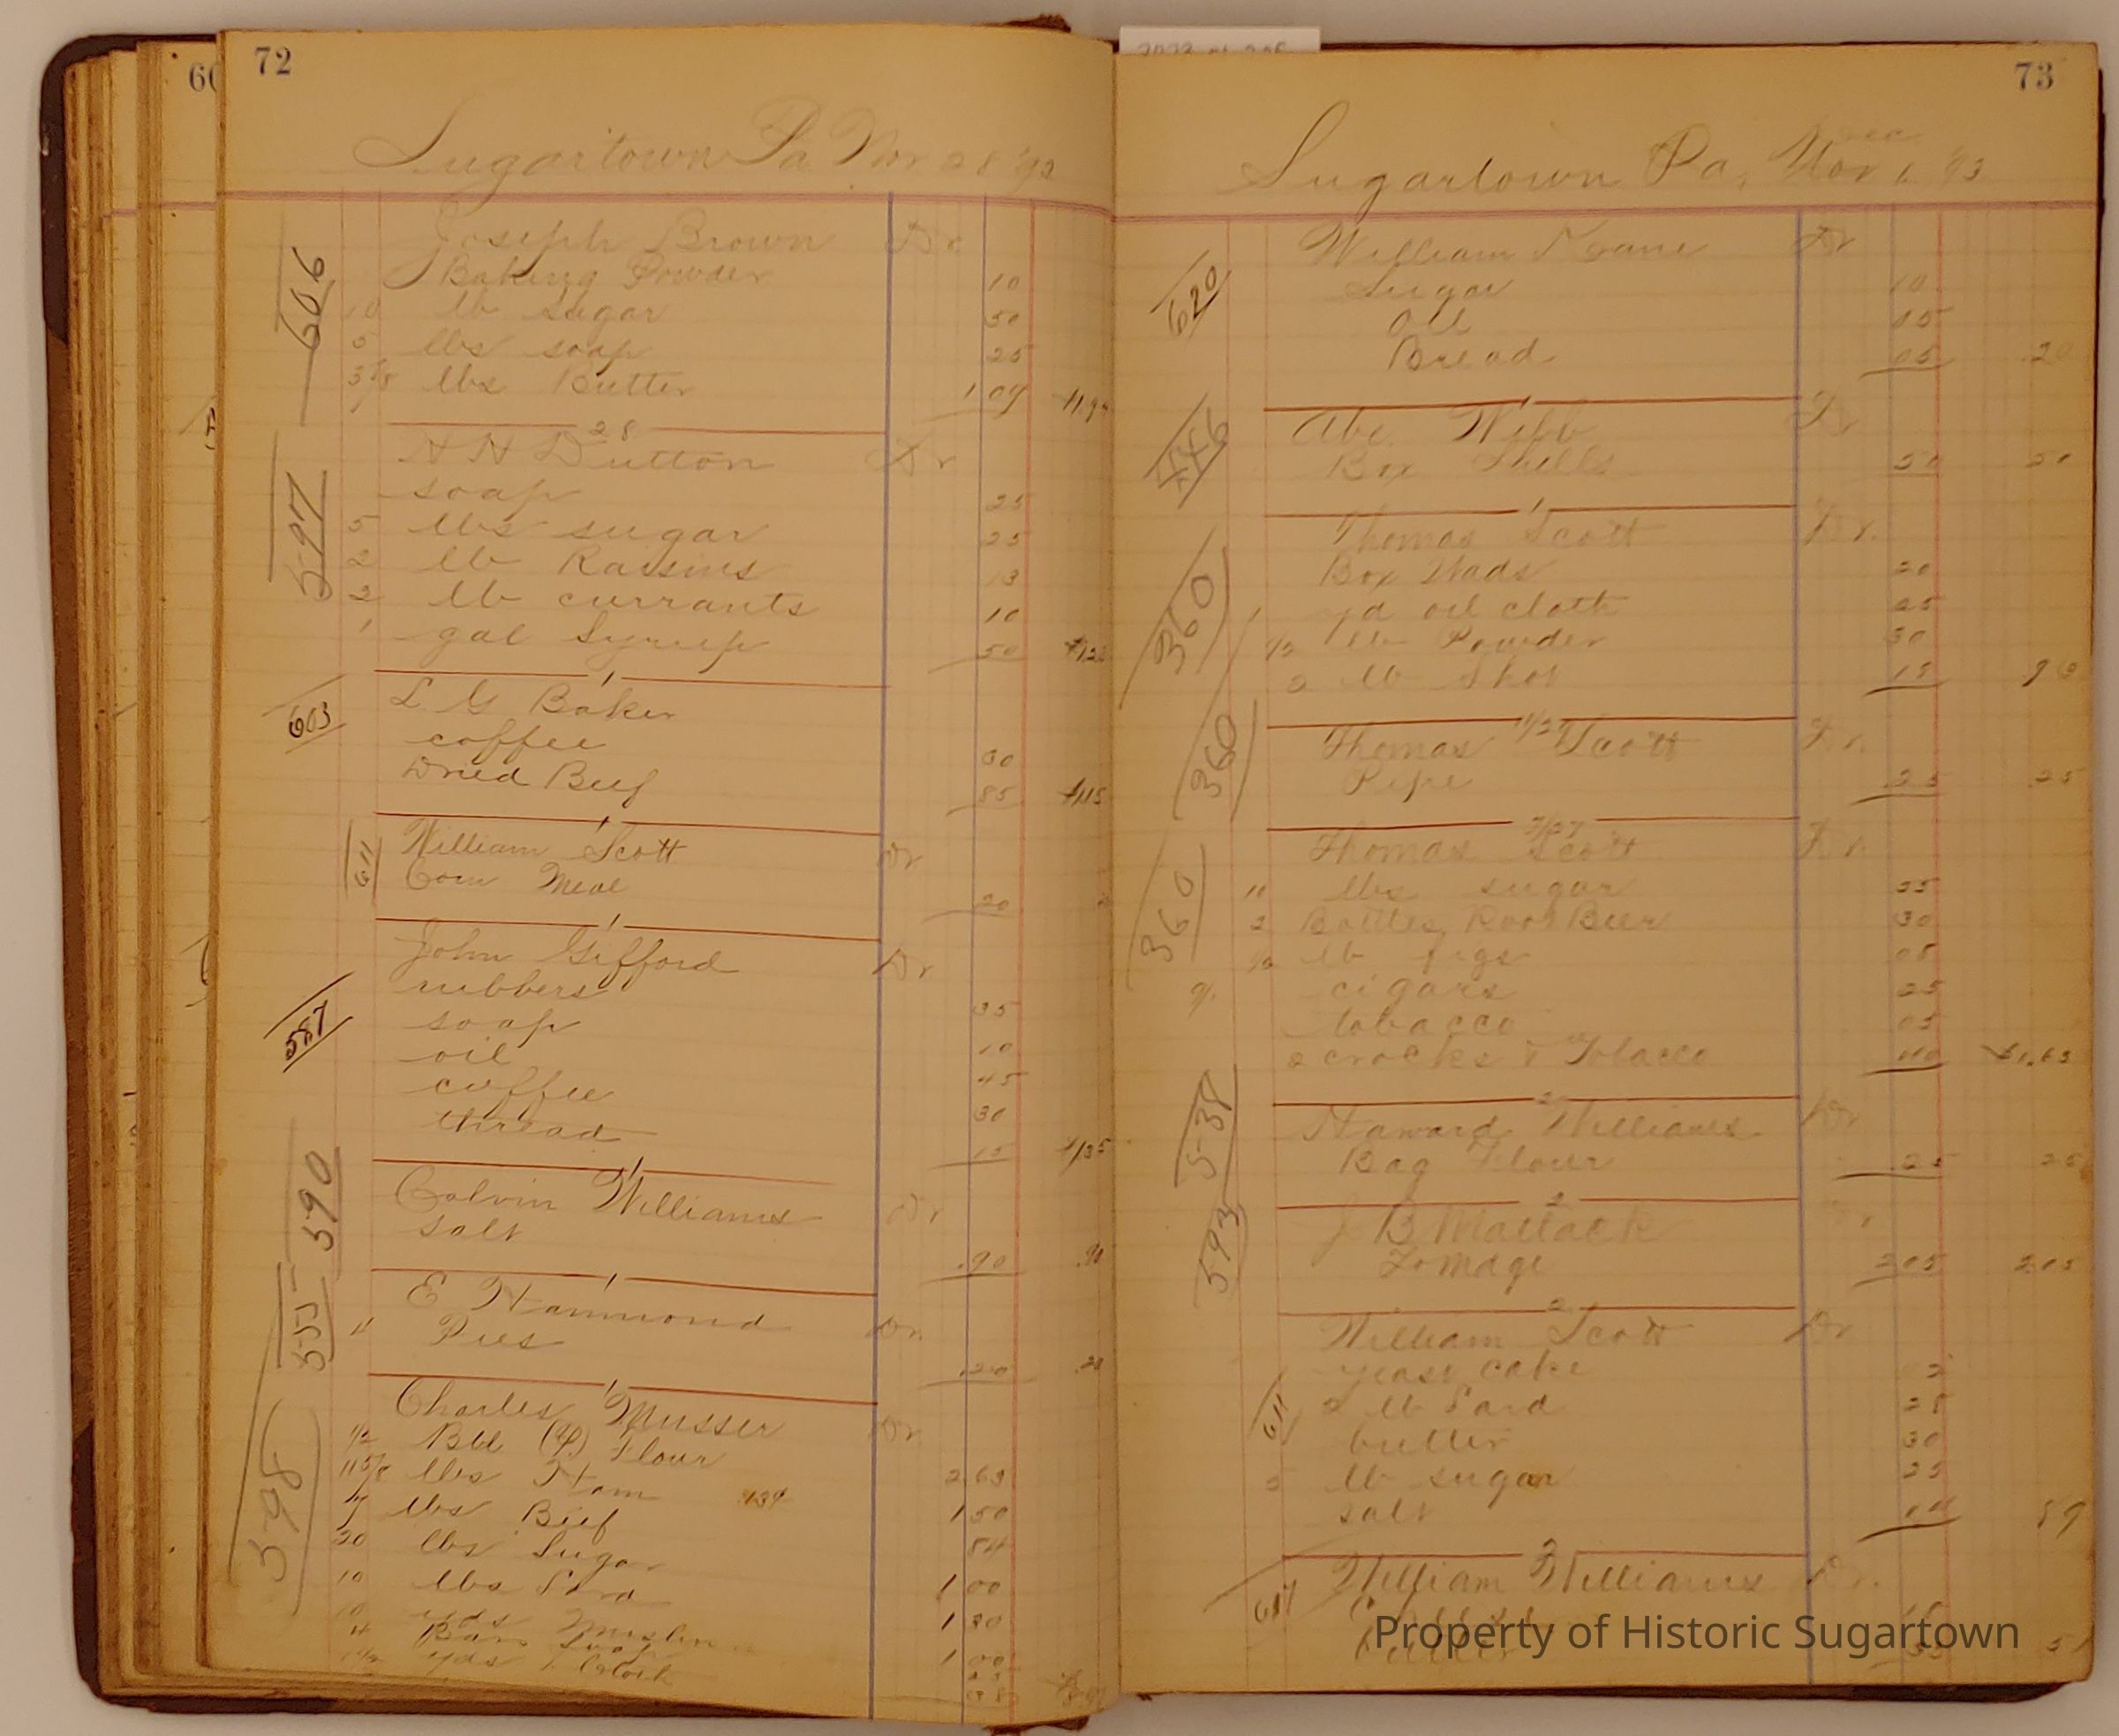 60
72
Sugartown Pa Nov 28 '92
606
Joseph Brown Dr
Baking Powder 10
10 lb Sugar 50
5 lbs soap 25
3 7/8 lbs Butter 1 09
28
597
H H Dutton Dr
soap 25
5 lbs sugar 25
2 lb Raisins 13
2 lb currants 10
1 gal Syrup 50
1
603
L G Baker
coffee 30
Dried Beef 85 1.15
1
611
William Scott Dr
Corn Meal 20
1
587
John Gifford Dr
rubbers 35
soap 10
oil 45
coffee 30
thread 15 1.35
1
590
Calvin Williams Dr
salt .90 .90
1
555
E Hammond Dr
Pies .20 .20
1
598
Charles Musser Dr
1/2 Bbl Flour 2 63
11 5/8 lbs Ham 1 50
7 lbs Beef 84
20 lbs Sugar 1 00
10 lbs Lard 1 30
10 yds Muslin 1 00
Bars Soap
yds
73
Sugartown Pa, Nov Dec 1 '93
620
William Kane Dr
Sugar 10
Oil 05
Bread 05 .20
1
446
Abe Webb Dr
Box Shells 50 50
1
360
Thomas Scott Dr.
Box Wads 20
1 yd oil cloth 25
1/2 lb Powder 30
2 lb Shot
11/27
360
Thomas Scott Dr.
Pipe 25 .25
360
Thomas Scott Dr.
11 lbs sugar 55
2 Bottles Root Beer 30
1/2 lb figs 08
cigars 25
tobacco 05
2 crocks & Tobacco
2
538
Howard Williams Dr
Bag Flour 25 25
2
593
J B Matlack
Fomage 2 05 2 05
2
611
William Scott Dr
yeast cake 2
2 lb Lard 25
butter 30
5 lb sugar 25
salt
3
617
William Williams Dr.
butter
Property of Historic Sugartown